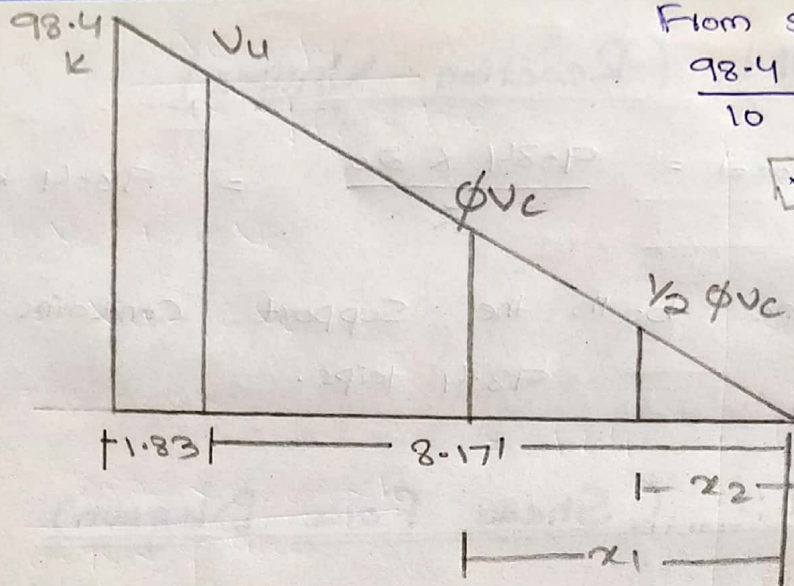 98.4
K
Vu
From s
98.4
10
ϕVc
1/2 ϕVc
1.83
8.17'
x2
x1